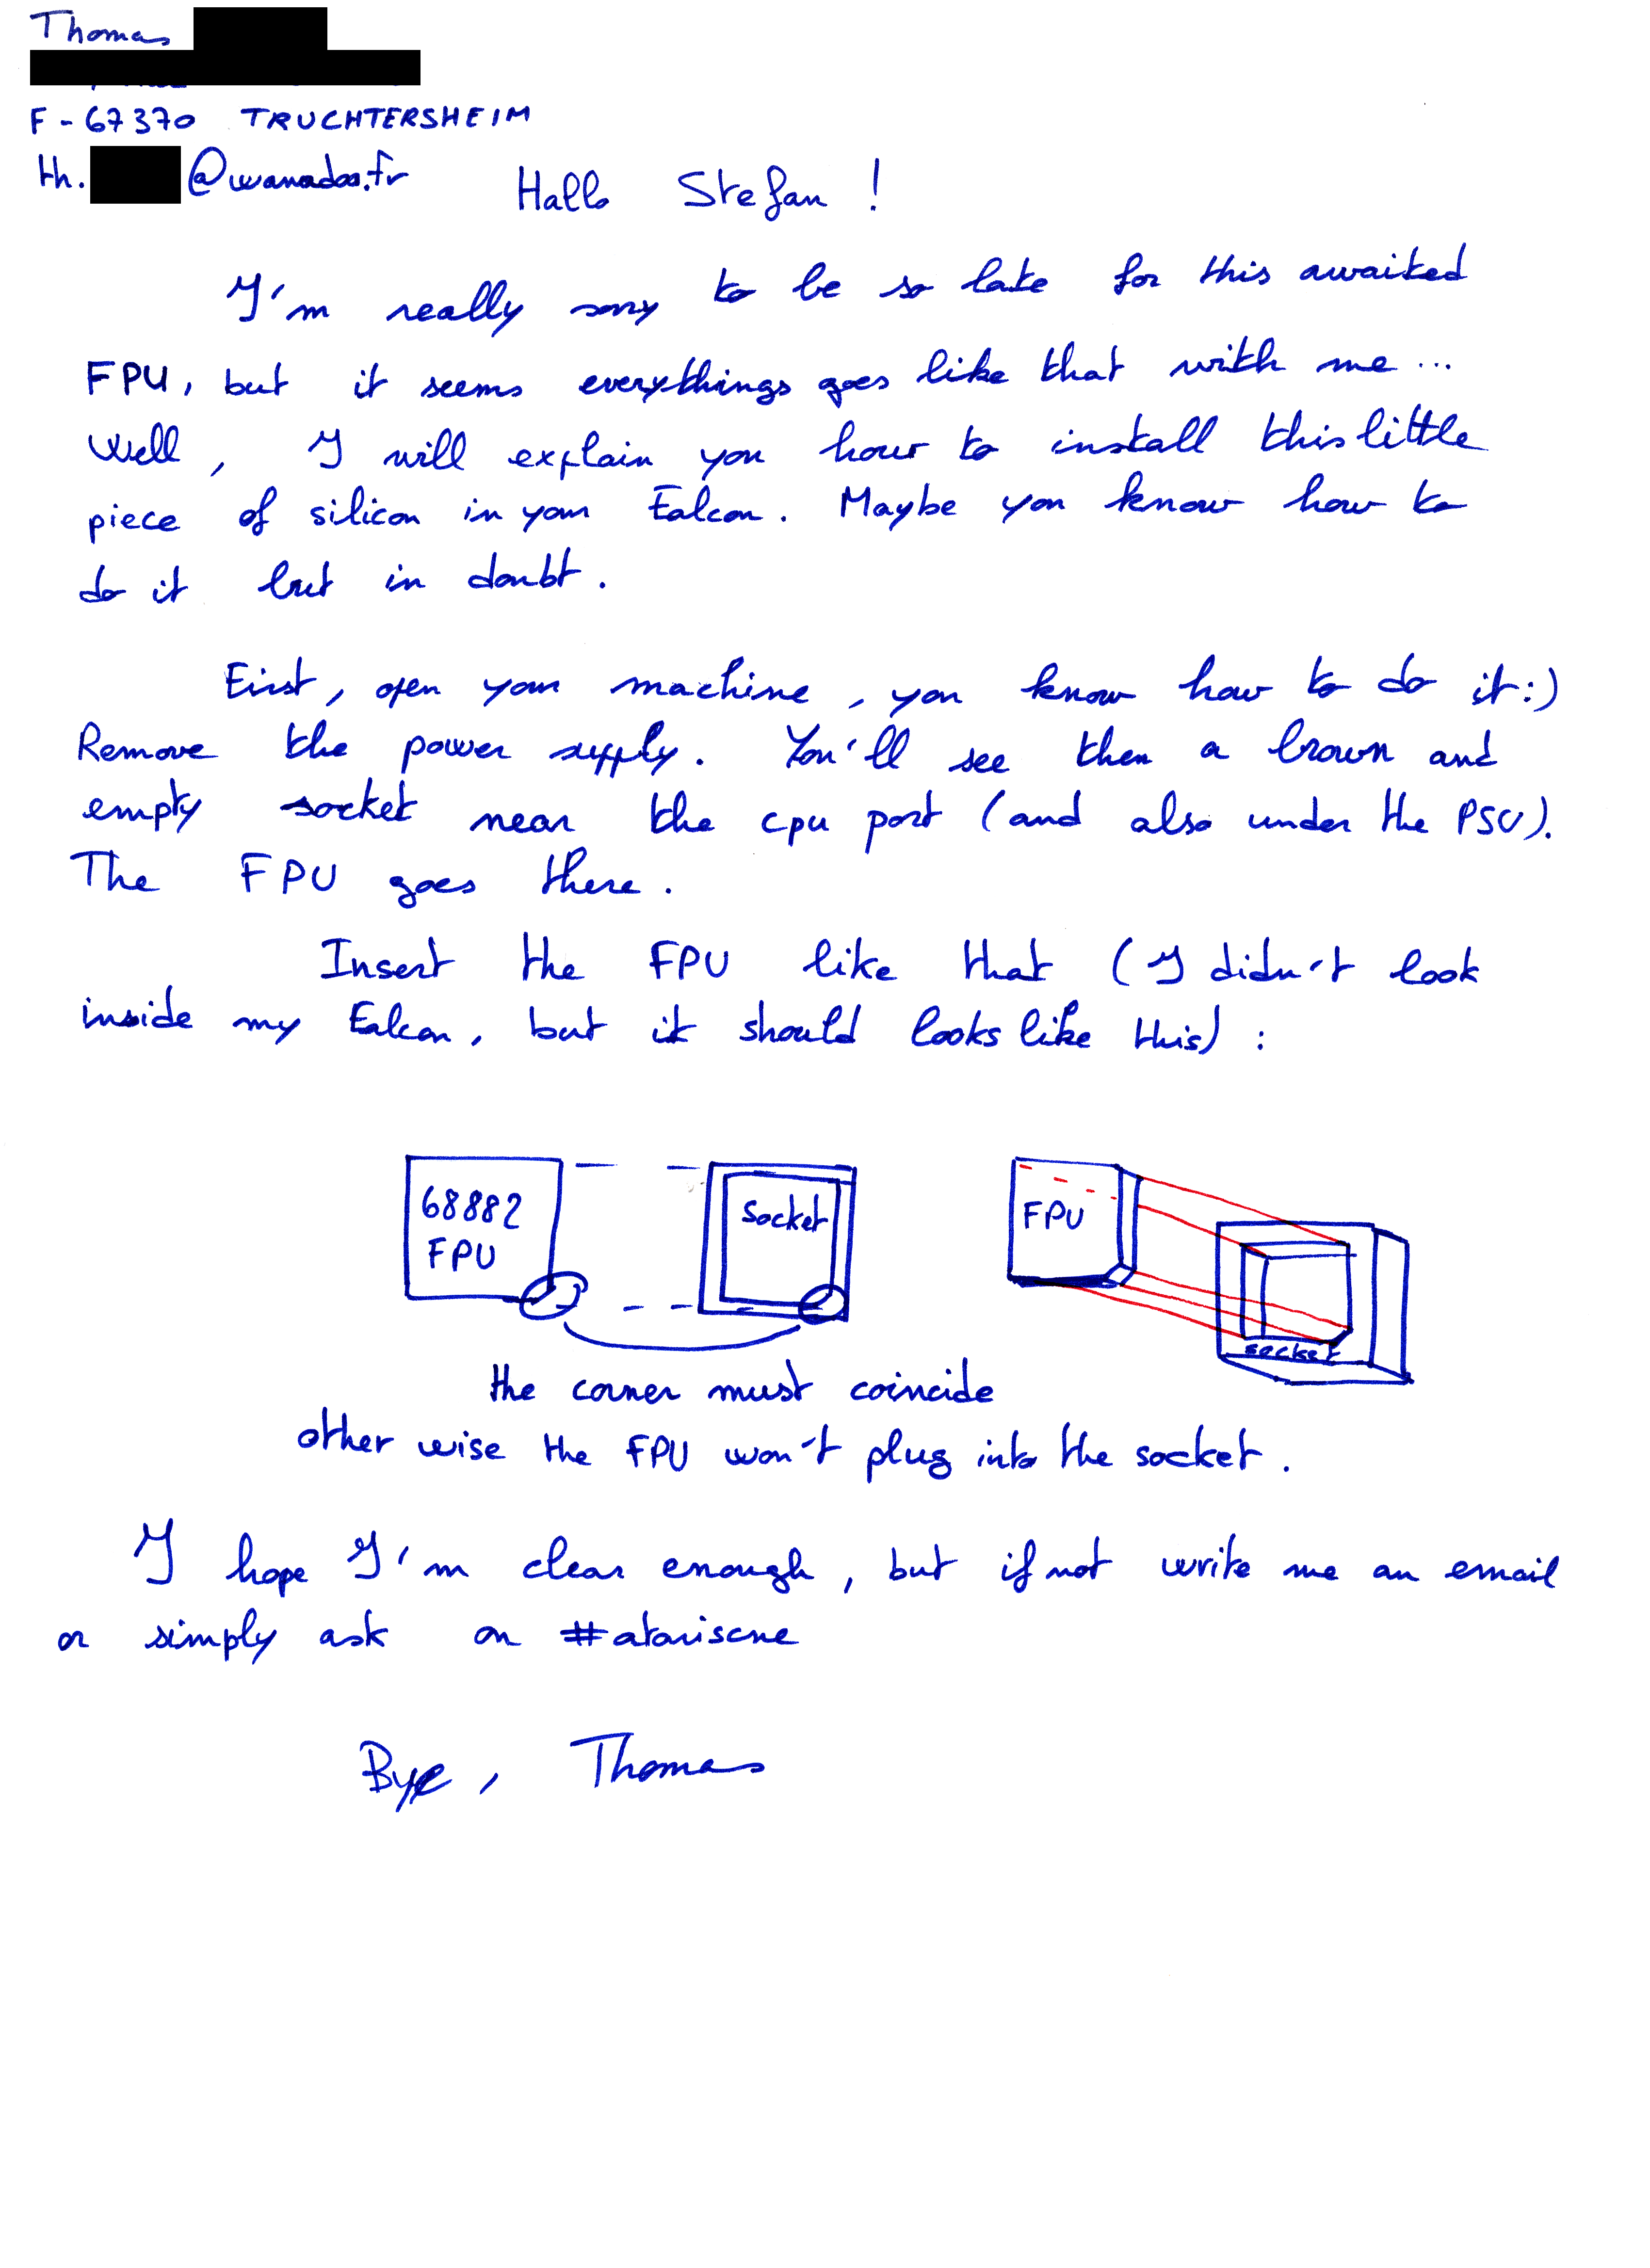 Thomas
F-67370 TRUCHTERSHEIM
th. @wanadoo.fr
Hallo Stefan !
I'm really sorry to be so late for this awaited
FPU, but it seems everythings goes like that with me...
Well, I will explain you how to install this little
piece of silicon in your Falcon. Maybe you know how to
do it but in doubt.
First, open your machine, you know how to do it :)
Remove the power supply. You'll see then a brown and
empty socket near the cpu port (and also under the PSU).
The FPU goes there.
Insert the FPU like that (I didn't look
inside my Falcon, but it should looks like this) :
68882
FPU
Socket
FPU
socket
the corner must coincide
other wise the FPU won't plug into the socket.
I hope I'm clear enough, but if not write me an email
or simply ask on #atariscne
Bye, Thomas